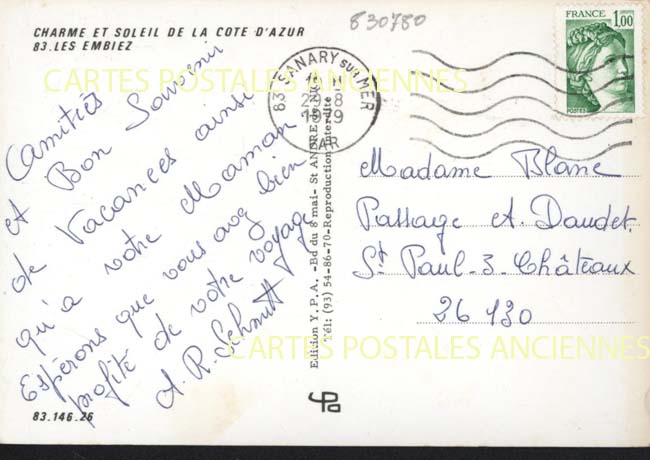 830780
CHARME ET SOLEIL DE LA COTE D'AZUR
83.LES EMBIEZ
FRANCE
1,00
POSTES
83 SANARY sur MER
1979
VAR
CARTES POSTALES ANCIENNES
Amitiés
et Bon Souvenir
de Vacances ainsi
qu'a votre Maman
Espérons que vous avez bien
profité de votre voyage
A. R. Schmitt
Edition Y.P.A. -Bd du 8 mai- St ANDRE
Tél: (93) 54-86-70-Reproduction interdite
Madame Blanc
Passage A. Daudet
St Paul-3-Châteaux
26130
CARTES POSTALES ANCIENNES
83.146.26